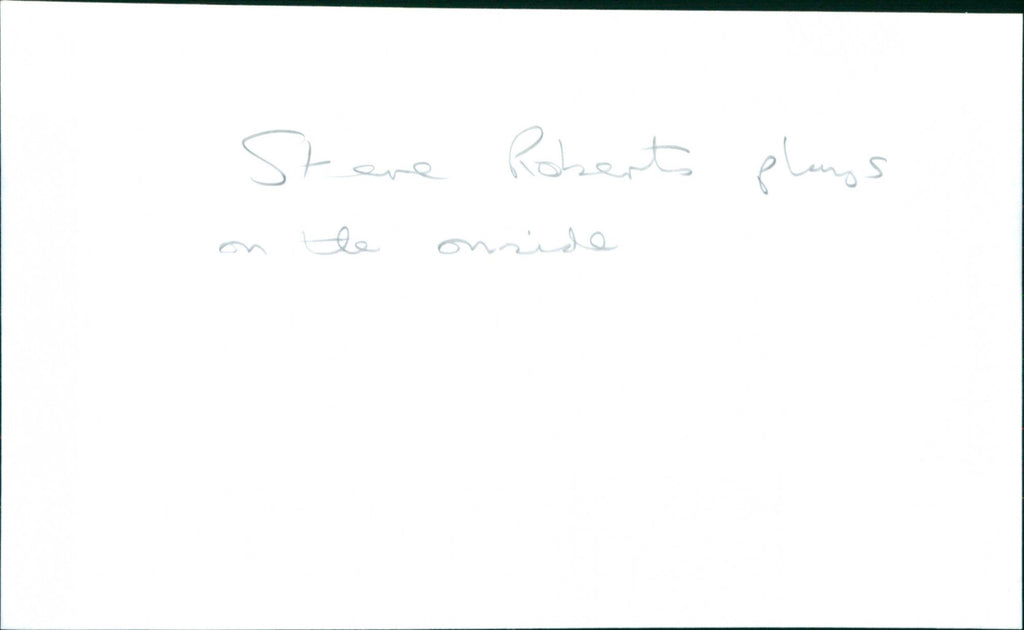 Steve Roberts plays
on the onside